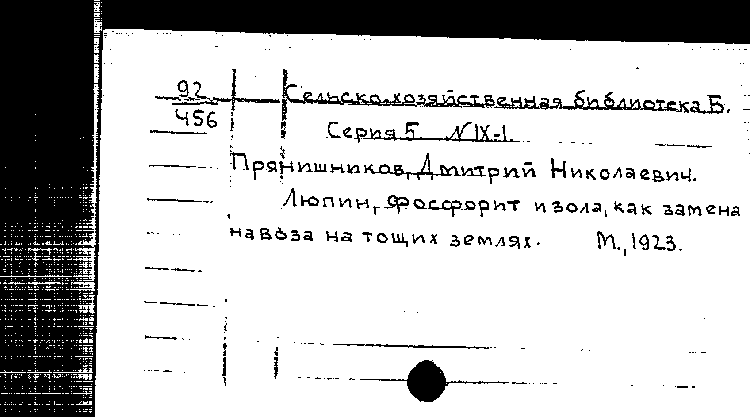 92
456
Сельскохозяйственная библиотека Б.
Серия 5 N IX-1.
Прянишников, Дмитрий Николаевич.
Люпин, фосфорит и зола, как замена
навоза на тощих землях. М., 1923.